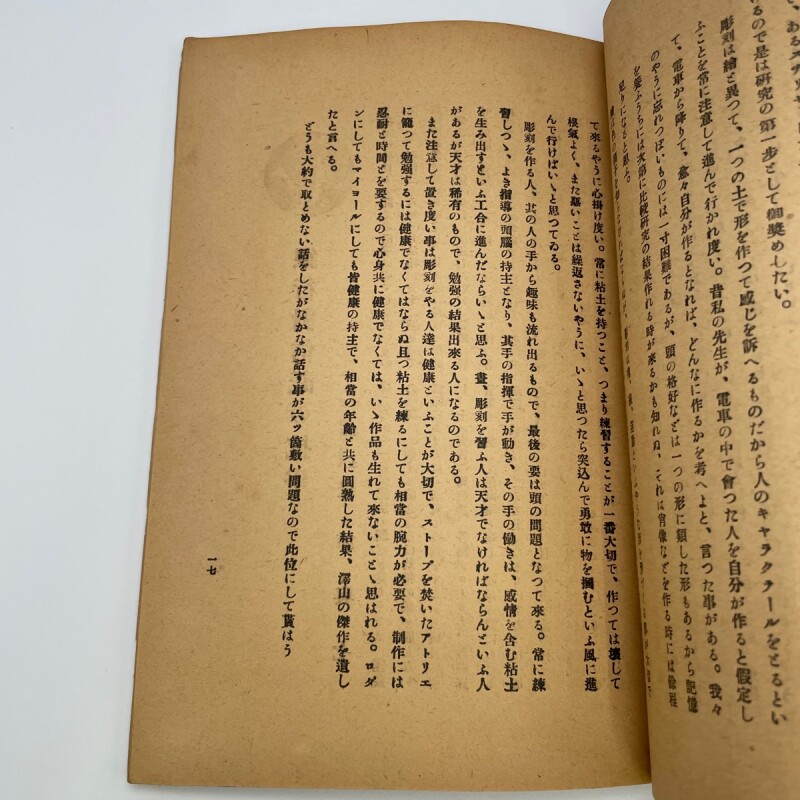 い、ある
けるので是は研究の第一歩として御奬めしたい。
彫刻は繪と異つて、一つの土で形を作つて感じを訴へるものだから人のキャラクテールをとるとい
ふことを常に注意して進んで行かれ度い。昔私の先生が、電車の中で會つた人を自分が作ると假定し
て、電車から降りて、愈々自分が作るとなれば、どんなに作るかを考へよと、言つた事がある。我々
のやうに忘れつぽいものには一寸困難であるが、頭の格好などは一つの形に類した形もあるから記憶
を養ふうちには次第に比較研究の結果作れる時が來るかも知れぬ、それは肖像などを作る時には餘程
足りになると思ふ。
て來るやうに心掛け度い。常に粘土を持つこと、つまり練習することが一番大切で、作つては壞して
根氣よく、また惡いことは繰返さないやうに、いゝと思つたら突込んで勇敢に物を摑むといふ風に進
んで行けばいゝと思つてゐる。
彫刻を作る人、其の人の手から趣味も流れ出るもので、最後の要は頭の問題となつて來る。常に練
習しつゝ、よき指導の頭腦の持主となり、其手の指揮で手が動き、その手の働きは、感情を含む粘土
を生み出すといふ工合に進んだならいゝと思ふ。畫、彫刻を習ふ人は天才でなければならんといふ人
があるが天才は稀有のもので、勉强の結果出來る人になるのである。
また注意して置き度い事は彫刻をやる人達は健康といふことが大切で、ストーブを焚いたアトリエ
に籠つて勉强するには健康でなくてはならぬ且つ粘土を練るにしても相當の腕力が必要で、制作には
忍耐と時間とを要するので心身共に健康でなくては、いゝ作品も生れて來ないことゝ思はれる。ロダ
ンにしてもマイヨールにしても皆健康の持主で、相當の年齡と共に圓熟した結果、澤山の傑作を遺し
たと言へる。
どうも大約で取とめない話をしたがなかなか話す事が六ツ箇敷い問題なので此位にして貰はう
一七